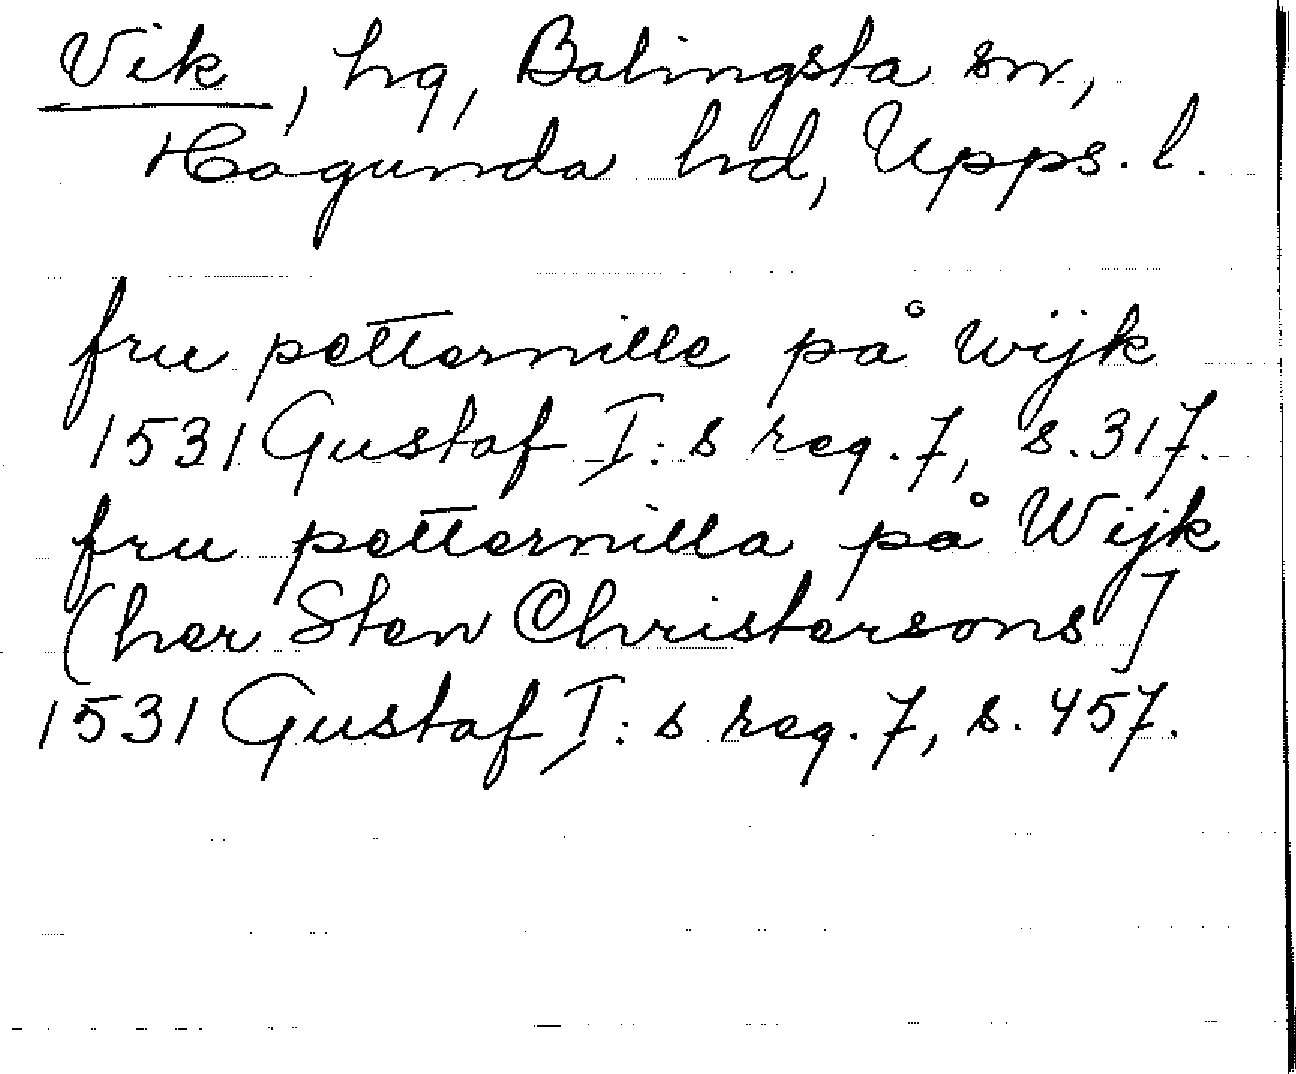 Vik, hg, Balingsta sn,
Hagunda hd, Upps. l.
fru petternille på wijk
1531 Gustaf I:s reg. 7, s. 317.
fru petternilla på Wijk
(her Sten Christersons]
1531 Gustaf I:s reg. 7, s. 457.